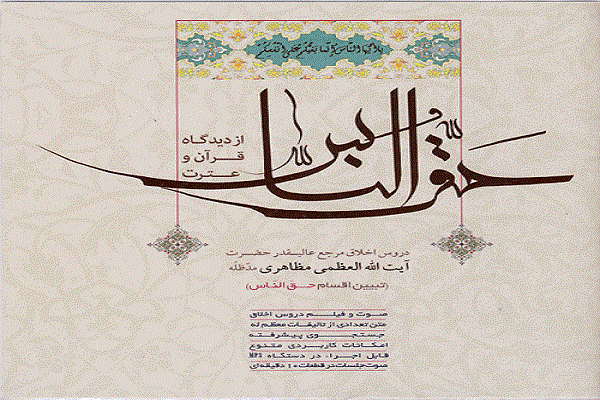 یا أیها الناس إنما بغیکم علی أنفسکم
حق الناس
از دیدگاه
قرآن و
عترت
دروس اخلاق مرجع عالیقدر حضرت
آیت الله العظمی مظاهری مدظله
(تبیین اقسام حق الناس)
صوت و فیلم دروس اخلاق
متن تعدادی از تالیفات معظم له
جستجوی پیشرفته
امکانات کاربردی متنوع
قابل اجرا در دستگاه MP3
صوت جلسات در قطعات ۱۰ دقیقه‌ای